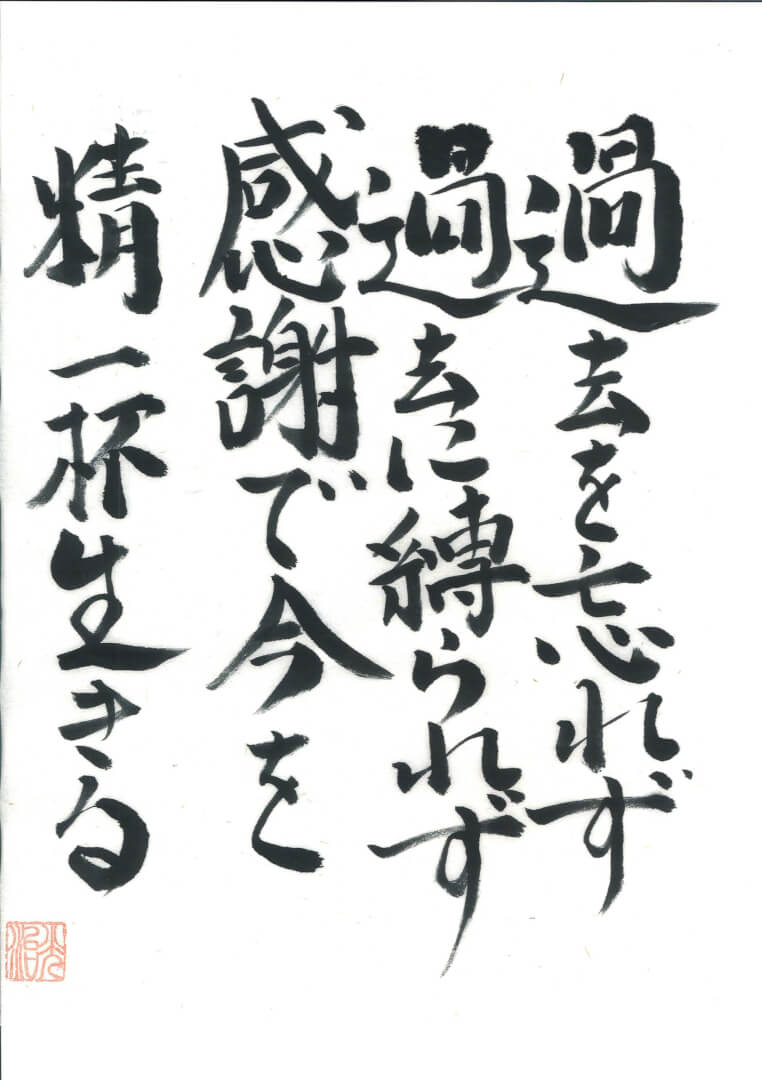 過去を忘れず
過去に縛られず
感謝で今を
精一杯生きる